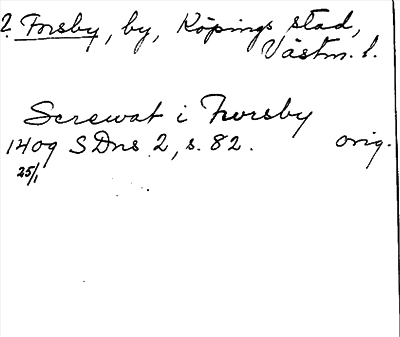 ? Forsby, by, Köpings stad,
Västm. l.
Screwat i Fworsby
1409 SDns 2, s. 82. orig.
25/1